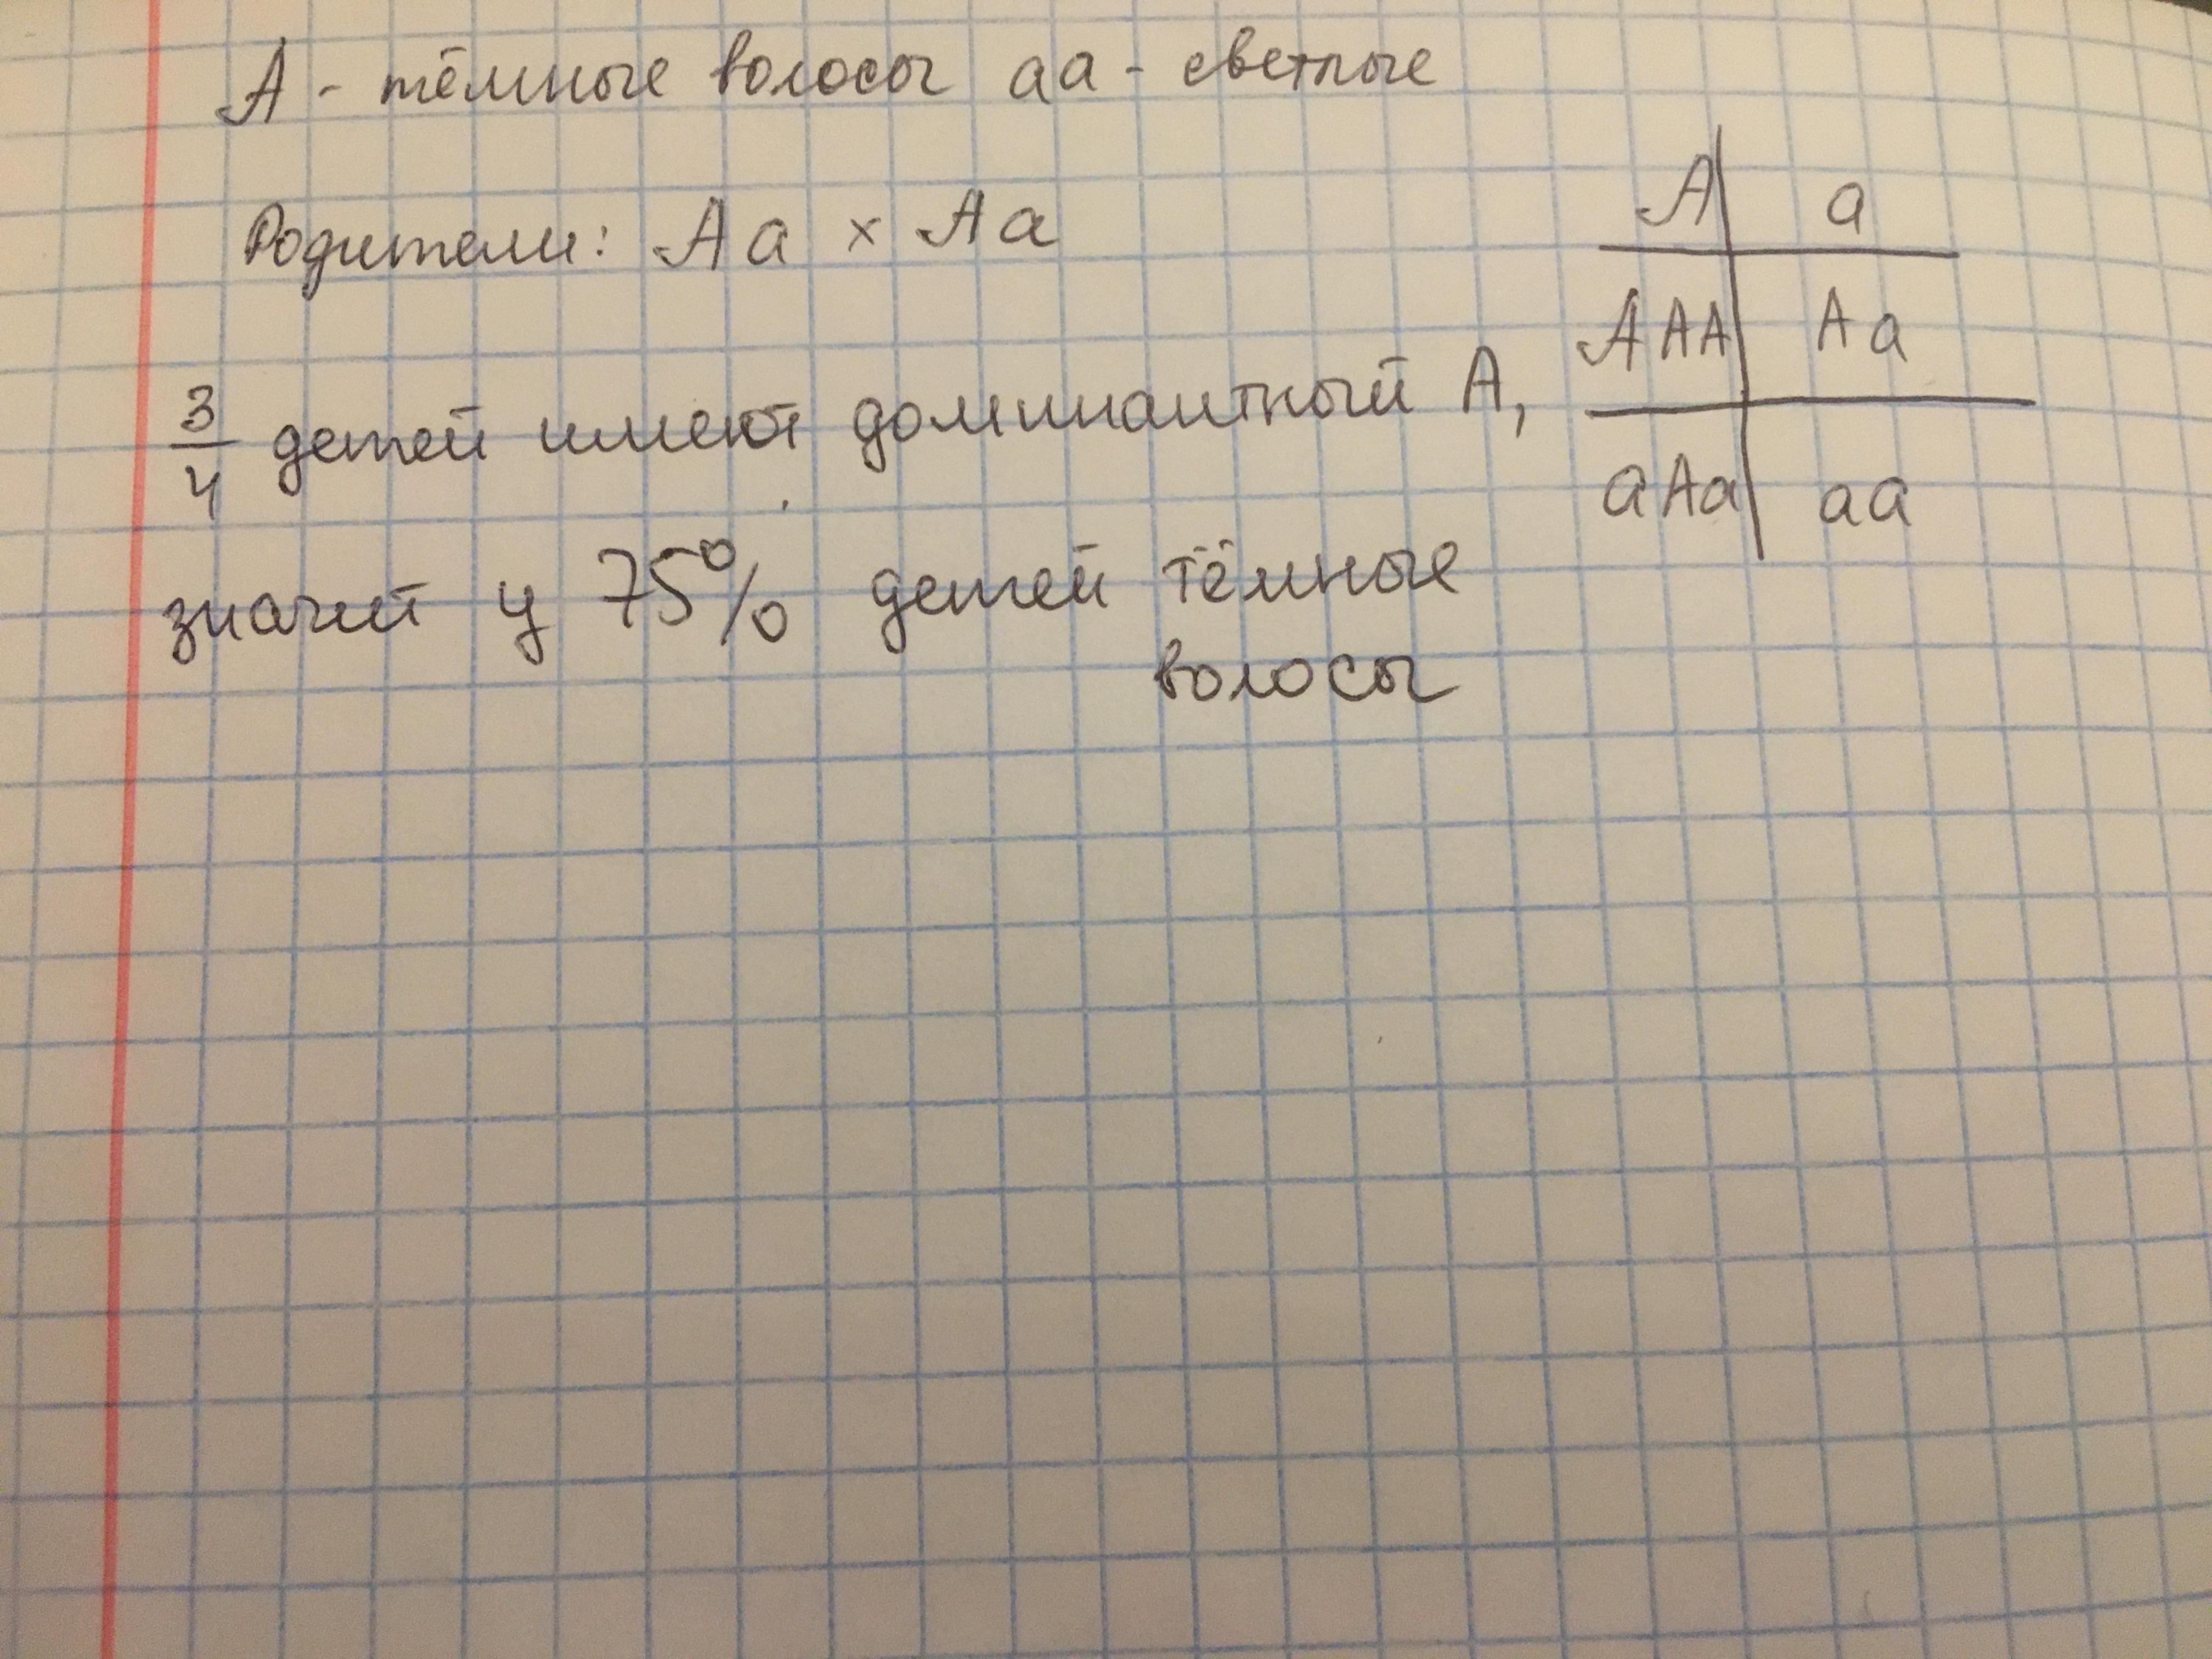 А - тёмные волосы аа - светлые
Родители: Аа х Аа
3/4 детей имеют доминантный А,
значит у 75% детей тёмные
волосы
А а
А АА Аа
а Аа аа